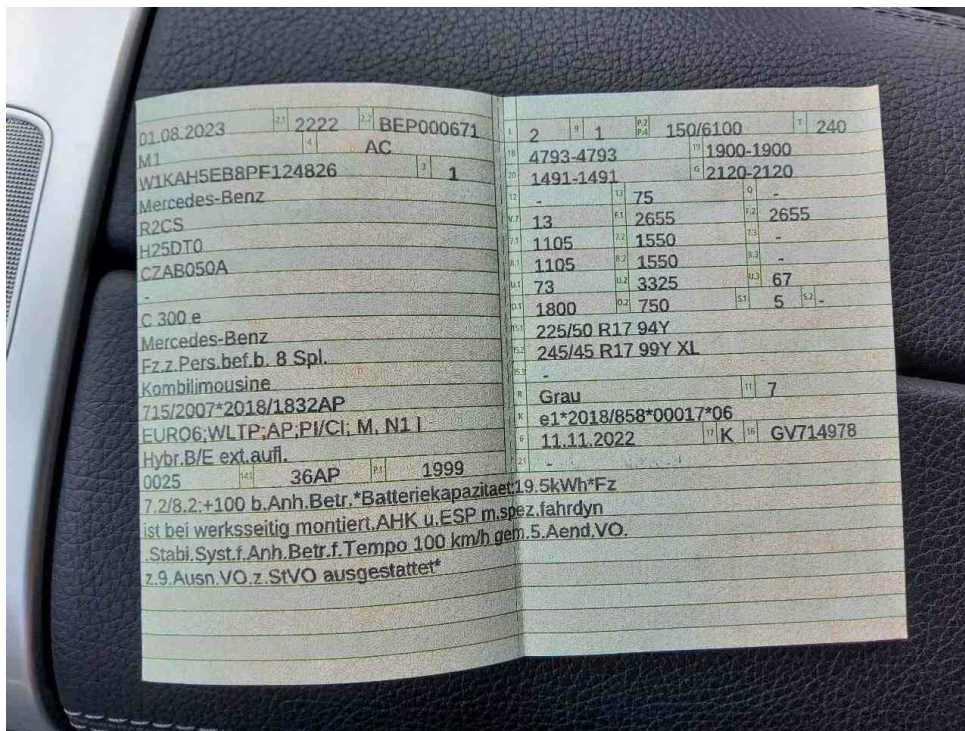 01.08.2023 2.1 2222 2.2 BEP000671
M1 4 AC
W1KAH5EB8PF124826 3 1
Mercedes-Benz
R2CS
H25DT0
CZAB050A
-
C 300 e
Mercedes-Benz
Fz.z.Pers.bef.b. 8 Spl.
Kombilimousine
715/2007*2018/1832AP
EURO6;WLTP;AP;PI/CI; M, N1 I
Hybr.B/E ext.aufl.
0025 14.1 36AP P.1 1999
7.2/8.2:+100 b.Anh.Betr.*Batteriekapazitaet:19.5kWh*Fz
ist bei werksseitig montiert.AHK u.ESP m.spez.fahrdyn
.Stabi.Syst.f.Anh.Betr.f.Tempo 100 km/h gem.5.Aend.VO.
z.9.Ausn.VO.z.StVO ausgestattet*
L 2 9 1 P.2 P.4 150/6100 T 240
18 4793-4793 19 1900-1900
20 1491-1491 G 2120-2120
12 - 13 75 Q -
V.7 13 F.1 2655 F.2 2655
7.1 1105 7.2 1550 7.3 -
8.1 1105 8.2 1550 8.3 -
U.1 73 U.2 3325 U.3 67
O.1 1800 O.2 750 S.1 5 S.2 -
15.1 225/50 R17 94Y
15.2 245/45 R17 99Y XL
15.3 -
R Grau 11 7
K e1*2018/858*00017*06
6 11.11.2022 17 K 16 GV714978
21 -